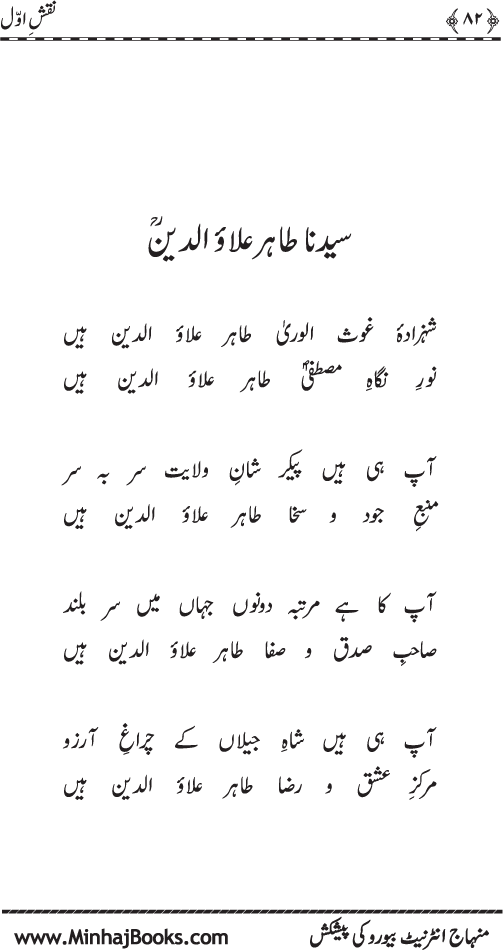 نقشِ اوّل ﴿۸۲﴾
سیدنا طاہر علاؤ الدینؒ
شہزادۂ غوث الوریٰ طاہر علاؤ الدین ہیں
نورِ نگاہِ مصطفیٰؐ طاہر علاؤ الدین ہیں
آپ ہی ہیں پیکر شانِ ولایت سر بہ سر
منبعِ جود و سخا طاہر علاؤ الدین ہیں
آپ کا ہے مرتبہ دونوں جہاں میں سر بلند
صاحبِ صدق و صفا طاہر علاؤ الدین ہیں
آپ ہی ہیں شاہِ جیلاں کے چراغِ آرزو
مرکزِ عشق و رضا طاہر علاؤ الدین ہیں
منہاج انٹرنیٹ بیورو کی پیشکش www.MinhajBooks.com